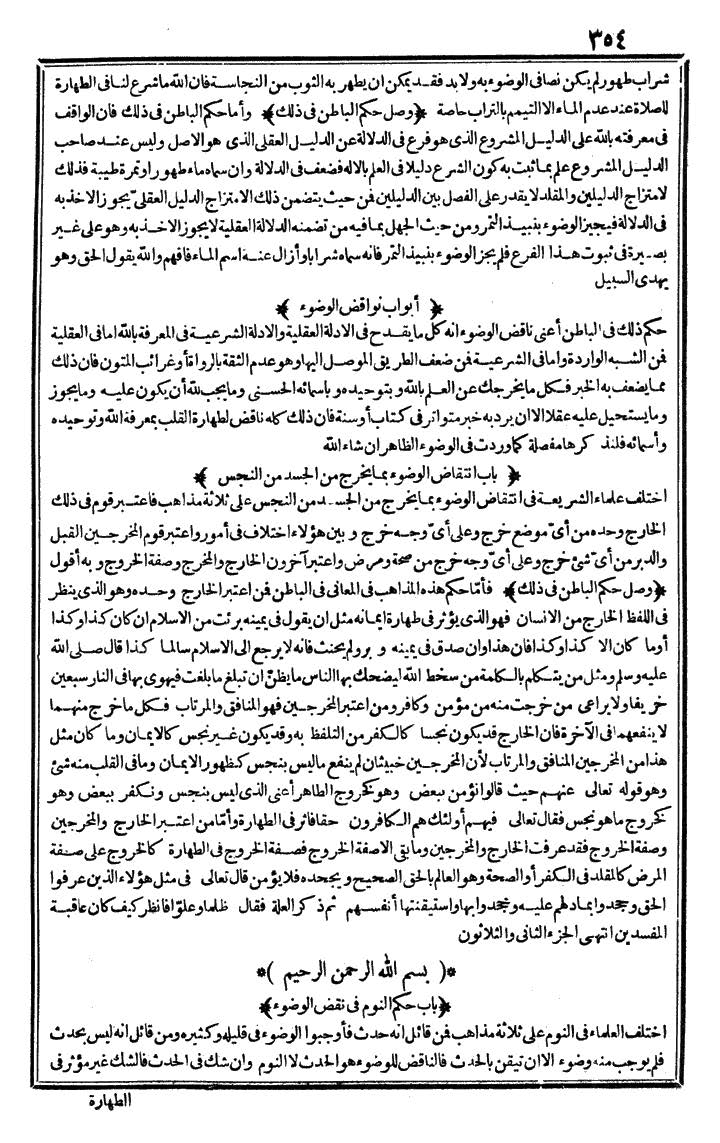 ٣٥٤
شراب طهور لم يكن نصافى الوضوء به ولابد فقد يمكن ان يطهر به الثوب من النجاسة فان الله ماشرع لنا فى الطهارة
للصلاة عند عدم الماء الا التيمم بالتراب خاصة ﴿وصل حكم الباطن فى ذلك﴾ وأما حكم الباطن فى ذلك فان الواقف
فى معرفته بالله على الدليل المشروع الذى هو فرع فى الدلالة عن الدليل العقلى الذى هو الاصل وليس عند صاحب
الدليل المشروع علم بما ثبت به كون الشرع دليلا فى العلم بالاله فضعف فى الدلالة وان سماه ماء طهورا وتمرة طيبة فذلك
لامتزاج الدليلين والمقلد لا يقدر على الفصل بين الدليلين فمن حيث يتضمن ذلك الامتزاج الدليل العقلىّ يجوز الاخذ به
فى الدلالة فيجيز الوضوء بنبيذ التمر ومن حيث الجهل بما فيه من تضمنه الدلالة العقلية لا يجوز الاخذ به وهو على غير
بصيرة فى ثبوت هذا الفرع فلم يجز الوضوء بنبيذ التمر فانه سماه شرابا وأزال عنه اسم الماء فافهم والله يقول الحق وهو
يهدى السبيل
﴿ أبواب نواقض الوضوء ﴾
حكم ذلك فى الباطن أعنى ناقض الوضوء انه كل ما يقدح فى الادلة العقلية والادلة الشرعية فى المعرفة بالله اما فى العقلية
فمن الشبه الواردة واما فى الشرعية فمن ضعف الطريق الموصل اليها وهو عدم الثقة بالرواة أو غرائب المتون فان ذلك
مما يضعف به الخبر فكل ما يخرجك عن العلم بالله وبتوحيده وباسمائه الحسنى وما يجب لله أن يكون عليه وما يجوز
وما يستحيل عليه عقلا الا ان يرد به خبر متواتر فى كتاب أو سنة فان ذلك كله ناقض لطهارة القلب بمعرفة الله وتوحيده
وأسمائه فلنذكرها مفصلة كما وردت فى الوضوء الظاهر ان شاء الله
﴿ باب انتقاض الوضوء بما يخرج من الجسد من النجس ﴾
اختلف علماء الشريعة فى انتقاض الوضوء بما يخرج من الجسد من النجس على ثلاثة مذاهب فاعتبر قوم فى ذلك
الخارج وحده من أىّ موضع خرج وعلى أىّ وجه خرج وبين هؤلاء اختلاف فى أمور واعتبر قوم المخرجين القبل
والدبر من أىّ شئ خرج وعلى أىّ وجه خرج من صحة ومرض واعتبر آخرون الخارج والمخرج وصفة الخروج وبه أقول
﴿وصل حكم الباطن فى ذلك﴾ فأمّا حكم هذه المذاهب فى المعانى فى الباطن فمن اعتبر الخارج وحده وهو الذى ينظر
فى اللفظ الخارج من الانسان فهو الذى يؤثر فى طهارة ايمانه مثل ان يقول فى يمينه برئت من الاسلام ان كان كذا وكذا
أو ما كان الا كذا وكذا فان هذا وان صدق فى يمينه وبر ولم يحنث فانه لا يرجع الى الاسلام سالما كذا قال صلى الله
عليه وسلم ومثل من يتكلم بالكلمة من سخط الله ليضحك بها الناس ما يظنّ ان تبلغ ما بلغت فيهوى بها فى النار سبعين
خريفا ولا يراعى من خرجت منه من مؤمن وكافر ومن اعتبر المخرجين فهو المنافق والمرتاب فكل ما خرج منهما
لا ينفعهما فى الآخرة فان الخارج قد يكون نجسا كالكفر من التلفظ به وقد يكون غير نجس كالايمان وما كان مثل
هذا من المخرجين المنافق والمرتاب لأن المخرجين خبيثان لم ينفع ما ليس بنجس كظهور الايمان وما فى القلب منه شئ
وهو قوله تعالى عنهم حيث قالوا نؤمن ببعض وهو كخروج الطاهر أعنى الذى ليس بنجس ونكفر ببعض وهو
كخروج ما هو نجس فقال تعالى فيهم أولئك هم الكافرون حقا فاثر فى الطهارة وأمّا من اعتبر الخارج والمخرجين
وصفة الخروج فقد عرفت الخارج والمخرجين وما بقى الا صفة الخروج فصفة الخروج فى الطهارة كالخروج على صفة
المرض كالمقلد فى الكفر أو الصحة وهو العالم بالحق الصحيح ويجحده فلا يؤمن قال تعالى فى مثل هؤلاء الذين عرفوا
الحق وجحدوا بما دلهم عليه وجحدوا بها واستيقنتها أنفسهم ثم ذكر العلة فقال ظلما وعلوّا فانظر كيف كان عاقبة
المفسدين انتهى الجزء الثانى والثلاثون
*( بسم الله الرحمن الرحيم )*
﴿باب حكم النوم فى نقض الوضوء﴾
اختلف العلماء فى النوم على ثلاثة مذاهب فمن قائل انه حدث فأوجبوا الوضوء فى قليله وكثيره ومن قائل انه ليس بحدث
فلم يوجب منه وضوء الا ان تيقن بالحدث فالناقض للوضوء هو الحدث لا النوم وان شك فى الحدث فالشك غير مؤثر فى
الطهارة